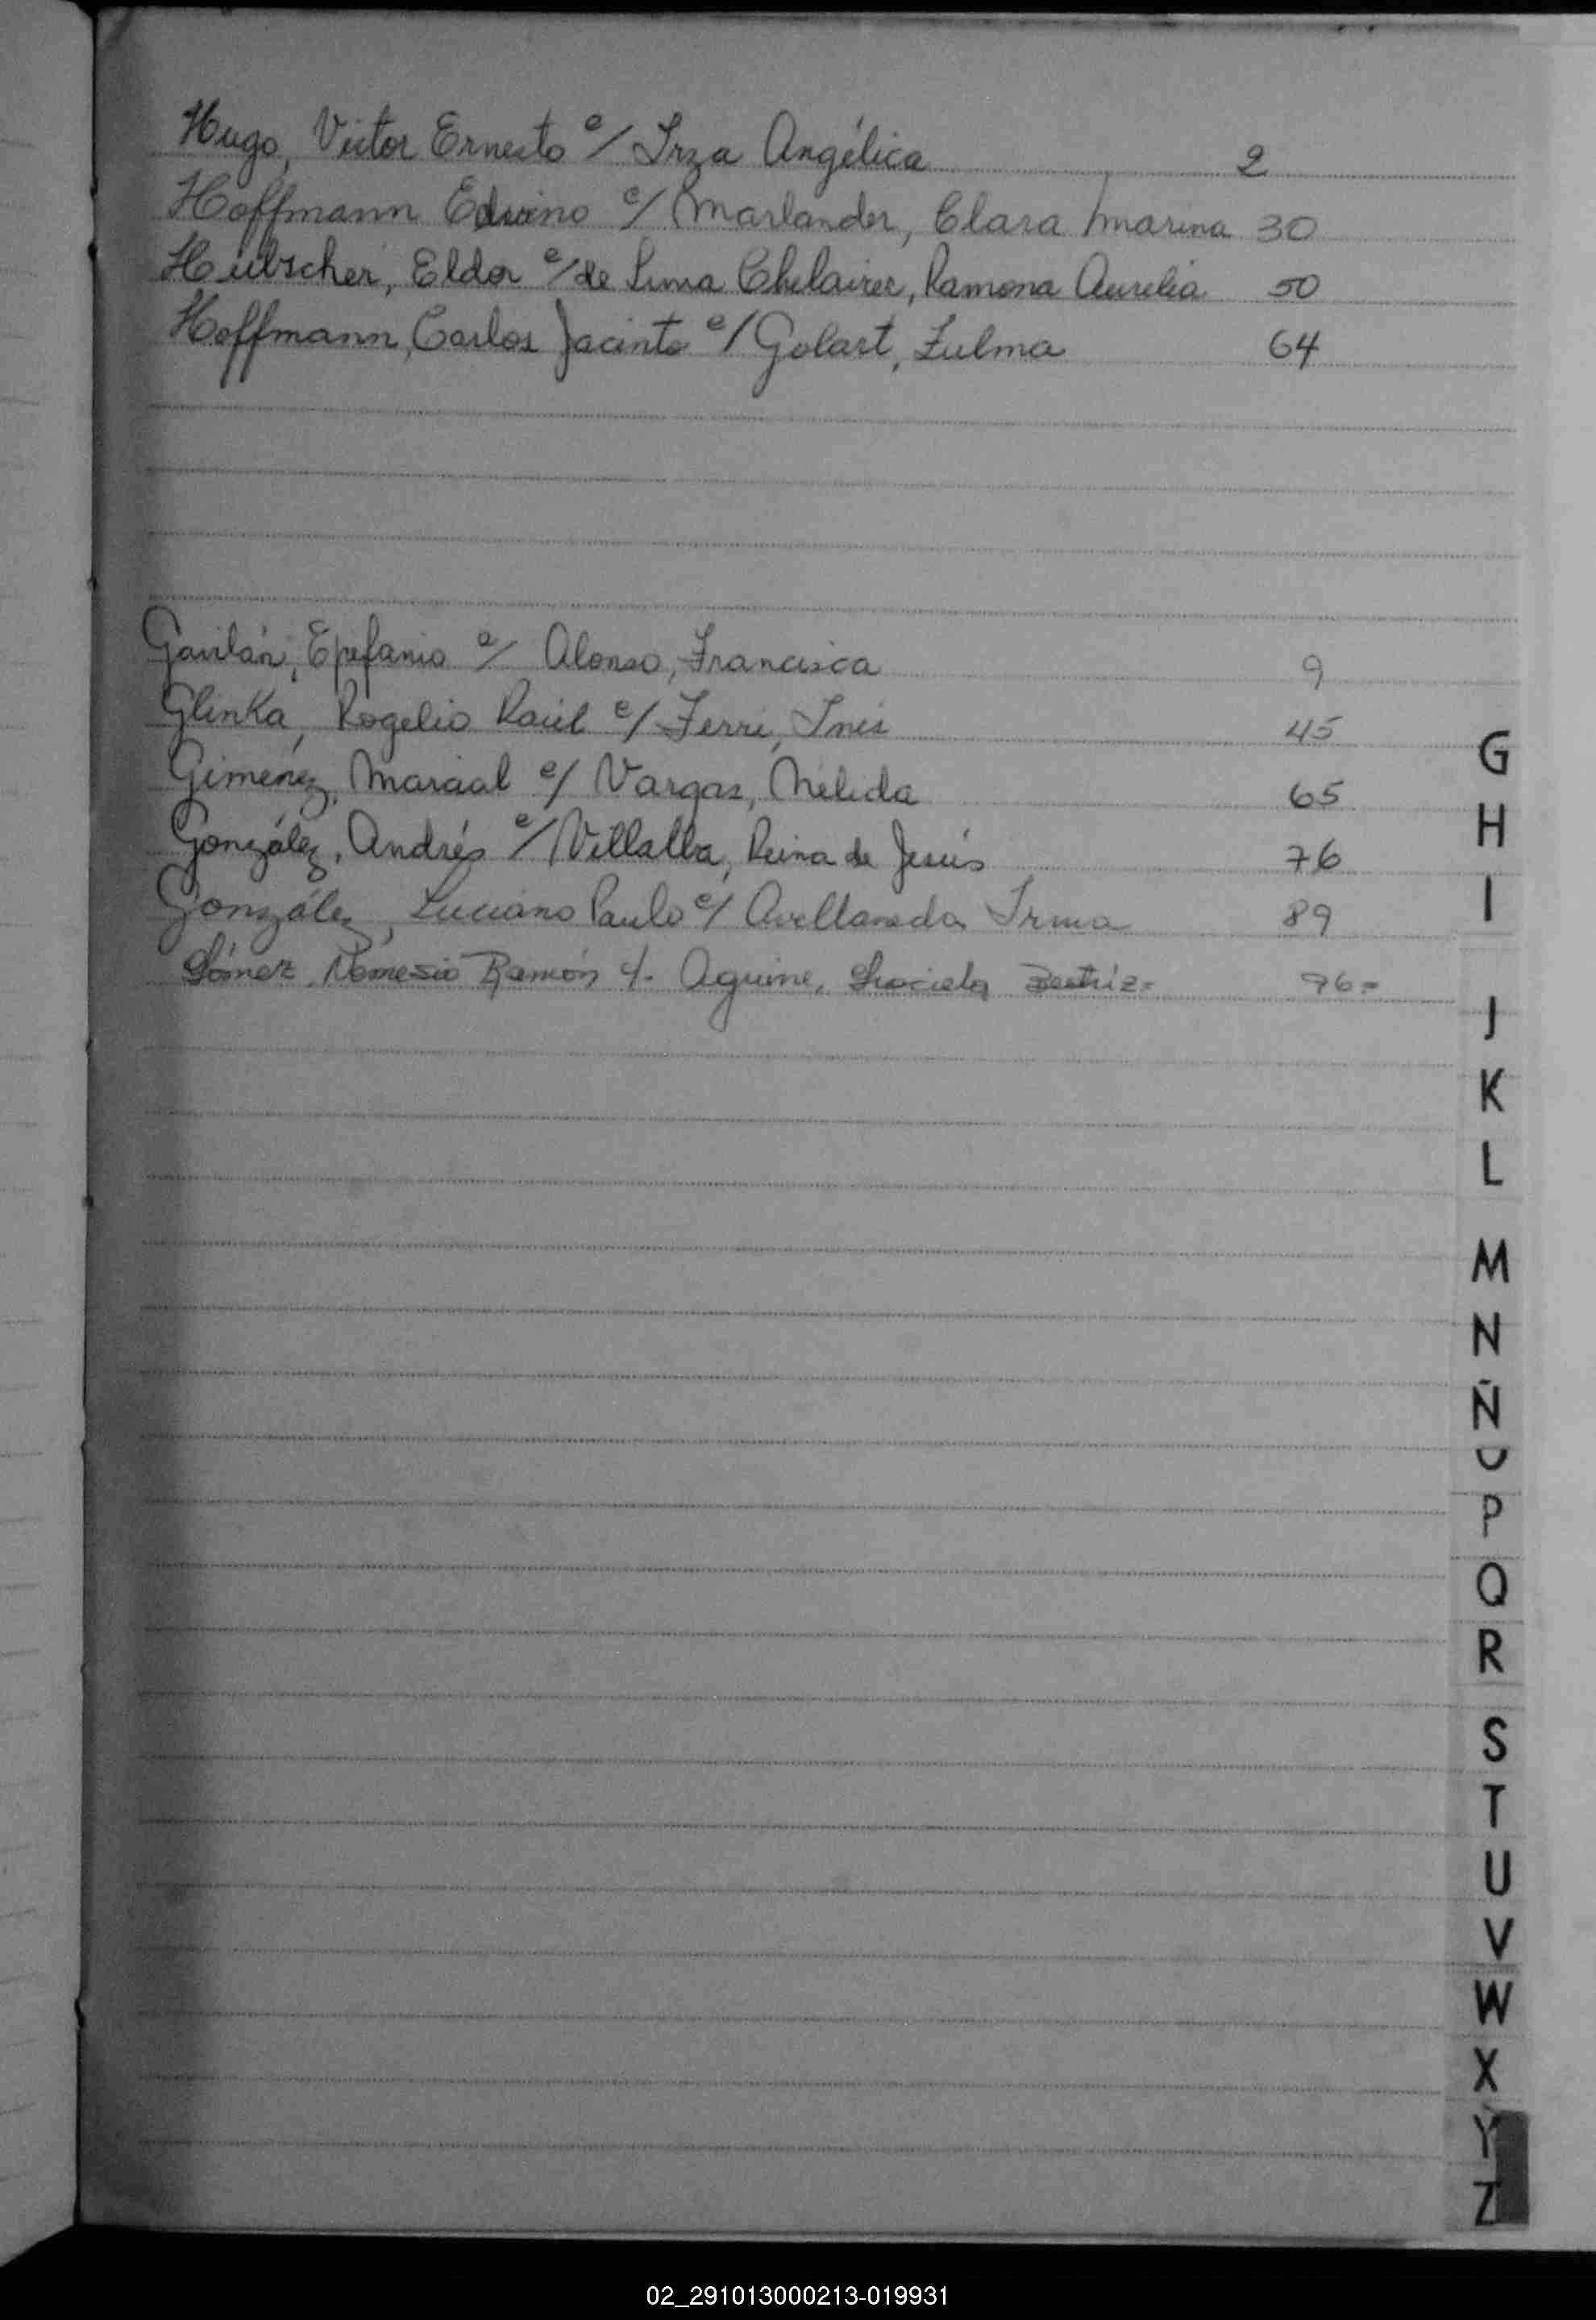 Hugo, Victor Ernesto c/ Irza Angélica 2
Hoffmann Eduino c/ Marlander, Clara Marina 30
Hübscher, Eldor c/ de Lima Chelairer, Ramona Aurelia 50
Hoffmann, Carlos Jacinto c/ Golart, Zulma 64
Gavilán, Epefanio c/ Alonso, Francisca 9
Glinka, Rogelio Raúl c/ Ferri, Inés 45
Giménez, Marcial c/ Vargas, Nélida 65
González, Andrés c/ Villalba, Reina de Jesús 76
González, Luciano Paulo c/ Avellaneda Irma 89
Gómez, Nemesio Ramón c/. Aguirre, Graciela Beatríz= 96=
G
H
I
J
K
L
M
N
Ñ
P
Q
R
S
T
U
V
W
X
Y
Z
02_291013000213-019931